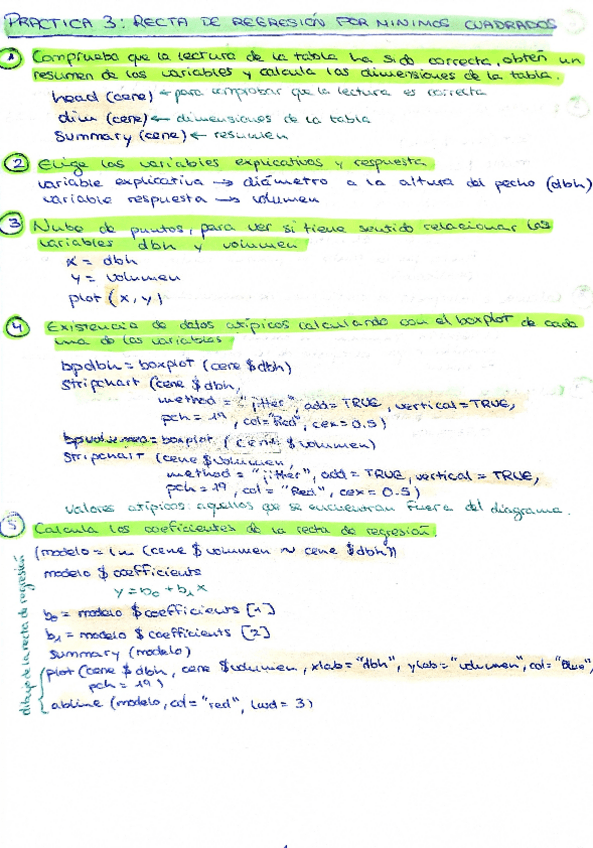 PRACTICA 3: RECTA DE REGRESIÓN POR MINIMOS CUADRADOS
1 Comprueba que la lectura de la tabla ha sido correcta, obtén un
resumen de las variables y calcula las dimensiones de la tabla.
head (cene) ← para comprobar que la lectura es correcta
dim (cene) ← dimensiones de la tabla
summary (cene) ← resumen
2 Elige las variables explicativas y respuesta
variable explicativa → diámetro a la altura del pecho (dbh)
variable respuesta → volumen
3 Nube de puntos, para ver si tiene sentido relacionar las
variables dbh y volumen
x = dbh
y = volumen
plot (x, y)
4 Existencia de datos atípicos calculando con el boxplot de cada
una de las variables.
bpdbh = boxplot (cene $ dbh)
stripchart (cene $ dbh,
method = "jitter", add = TRUE, vertical = TRUE,
pch = 19, col = "Red", cex = 0.5)
bpvolumen = boxplot (cene $ volumen)
stripchart (cene $ volumen,
method = "jitter", add = TRUE, vertical = TRUE,
pch = 19, col = "Red", cex = 0.5)
valores atípicos: aquellos que se encuentran fuera del diagrama.
5 Calcula los coeficientes de la recta de regresión.
(modelo = lm (cene $ volumen ~ cene $ dbh))
modelo $ coefficients
y = b0 + b1 x
b0 = modelo $ coefficients [1]
b1 = modelo $ coefficients [2]
summary (modelo)
dibujo de la recta de regresión
plot (cene $ dbh, cene $ volumen, xlab = "dbh", ylab = "volumen", col = "Blue",
pch = 19)
abline (modelo, col = "red", lwd = 3)